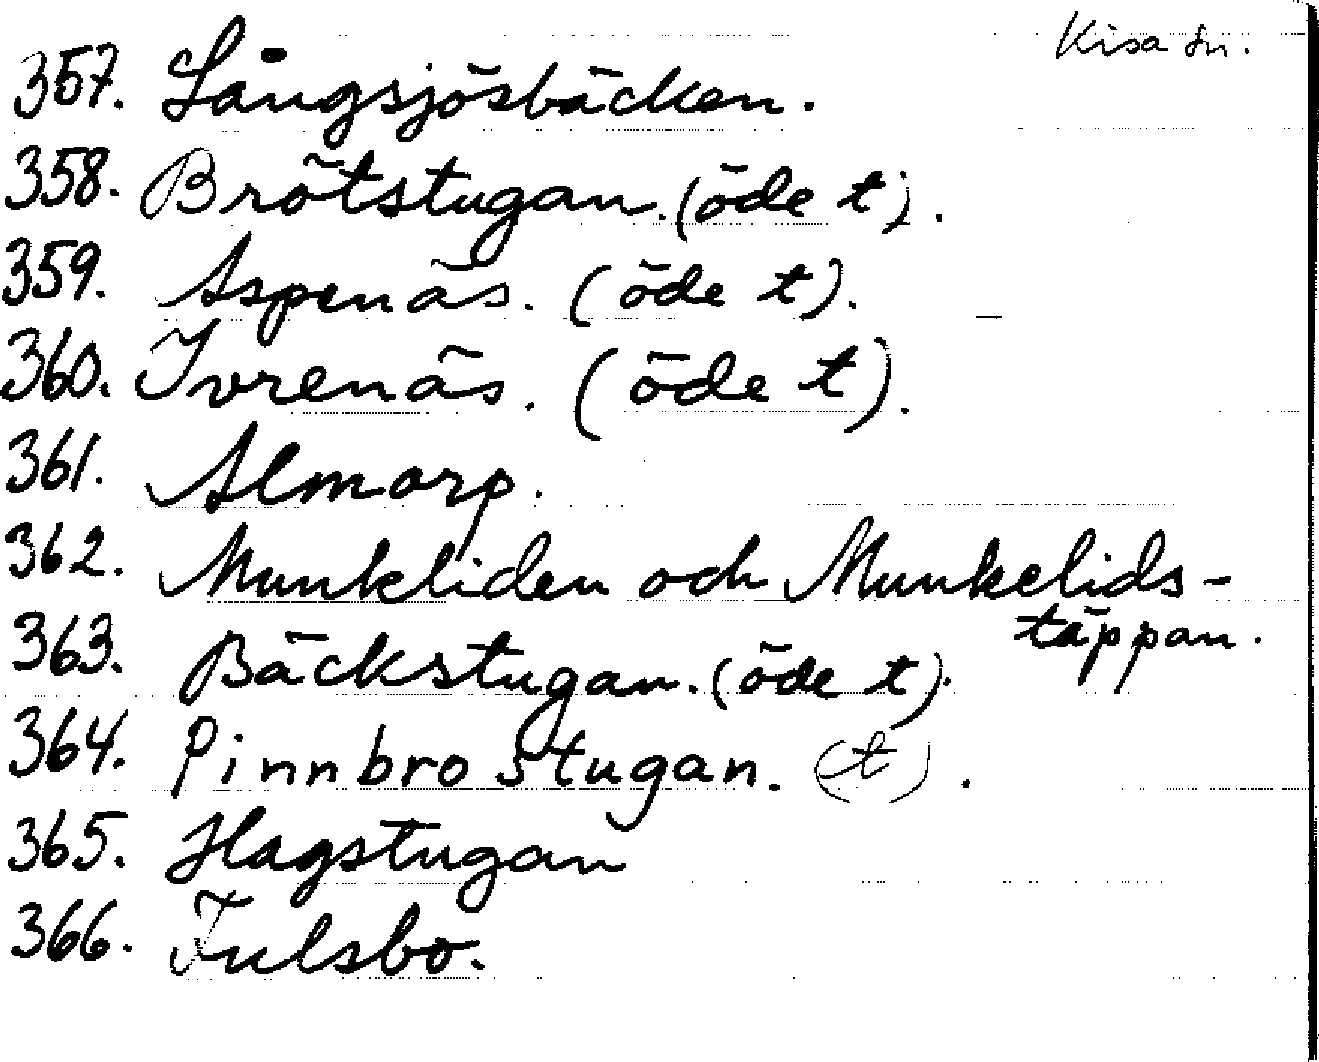 Kisa sn.
357. Långsjösbäcken.
358. Brötstugan. (öde t).
359. Aspenäs. (öde t).
360. Ivrenäs. (öde t).
361. Almarp.
362. Munkeliden och Munkelids-
täppan.
363. Bäckstugan. (öde t).
364. Pinnbrostugan. (t).
365. Hagstugan
366. Fulsbo.